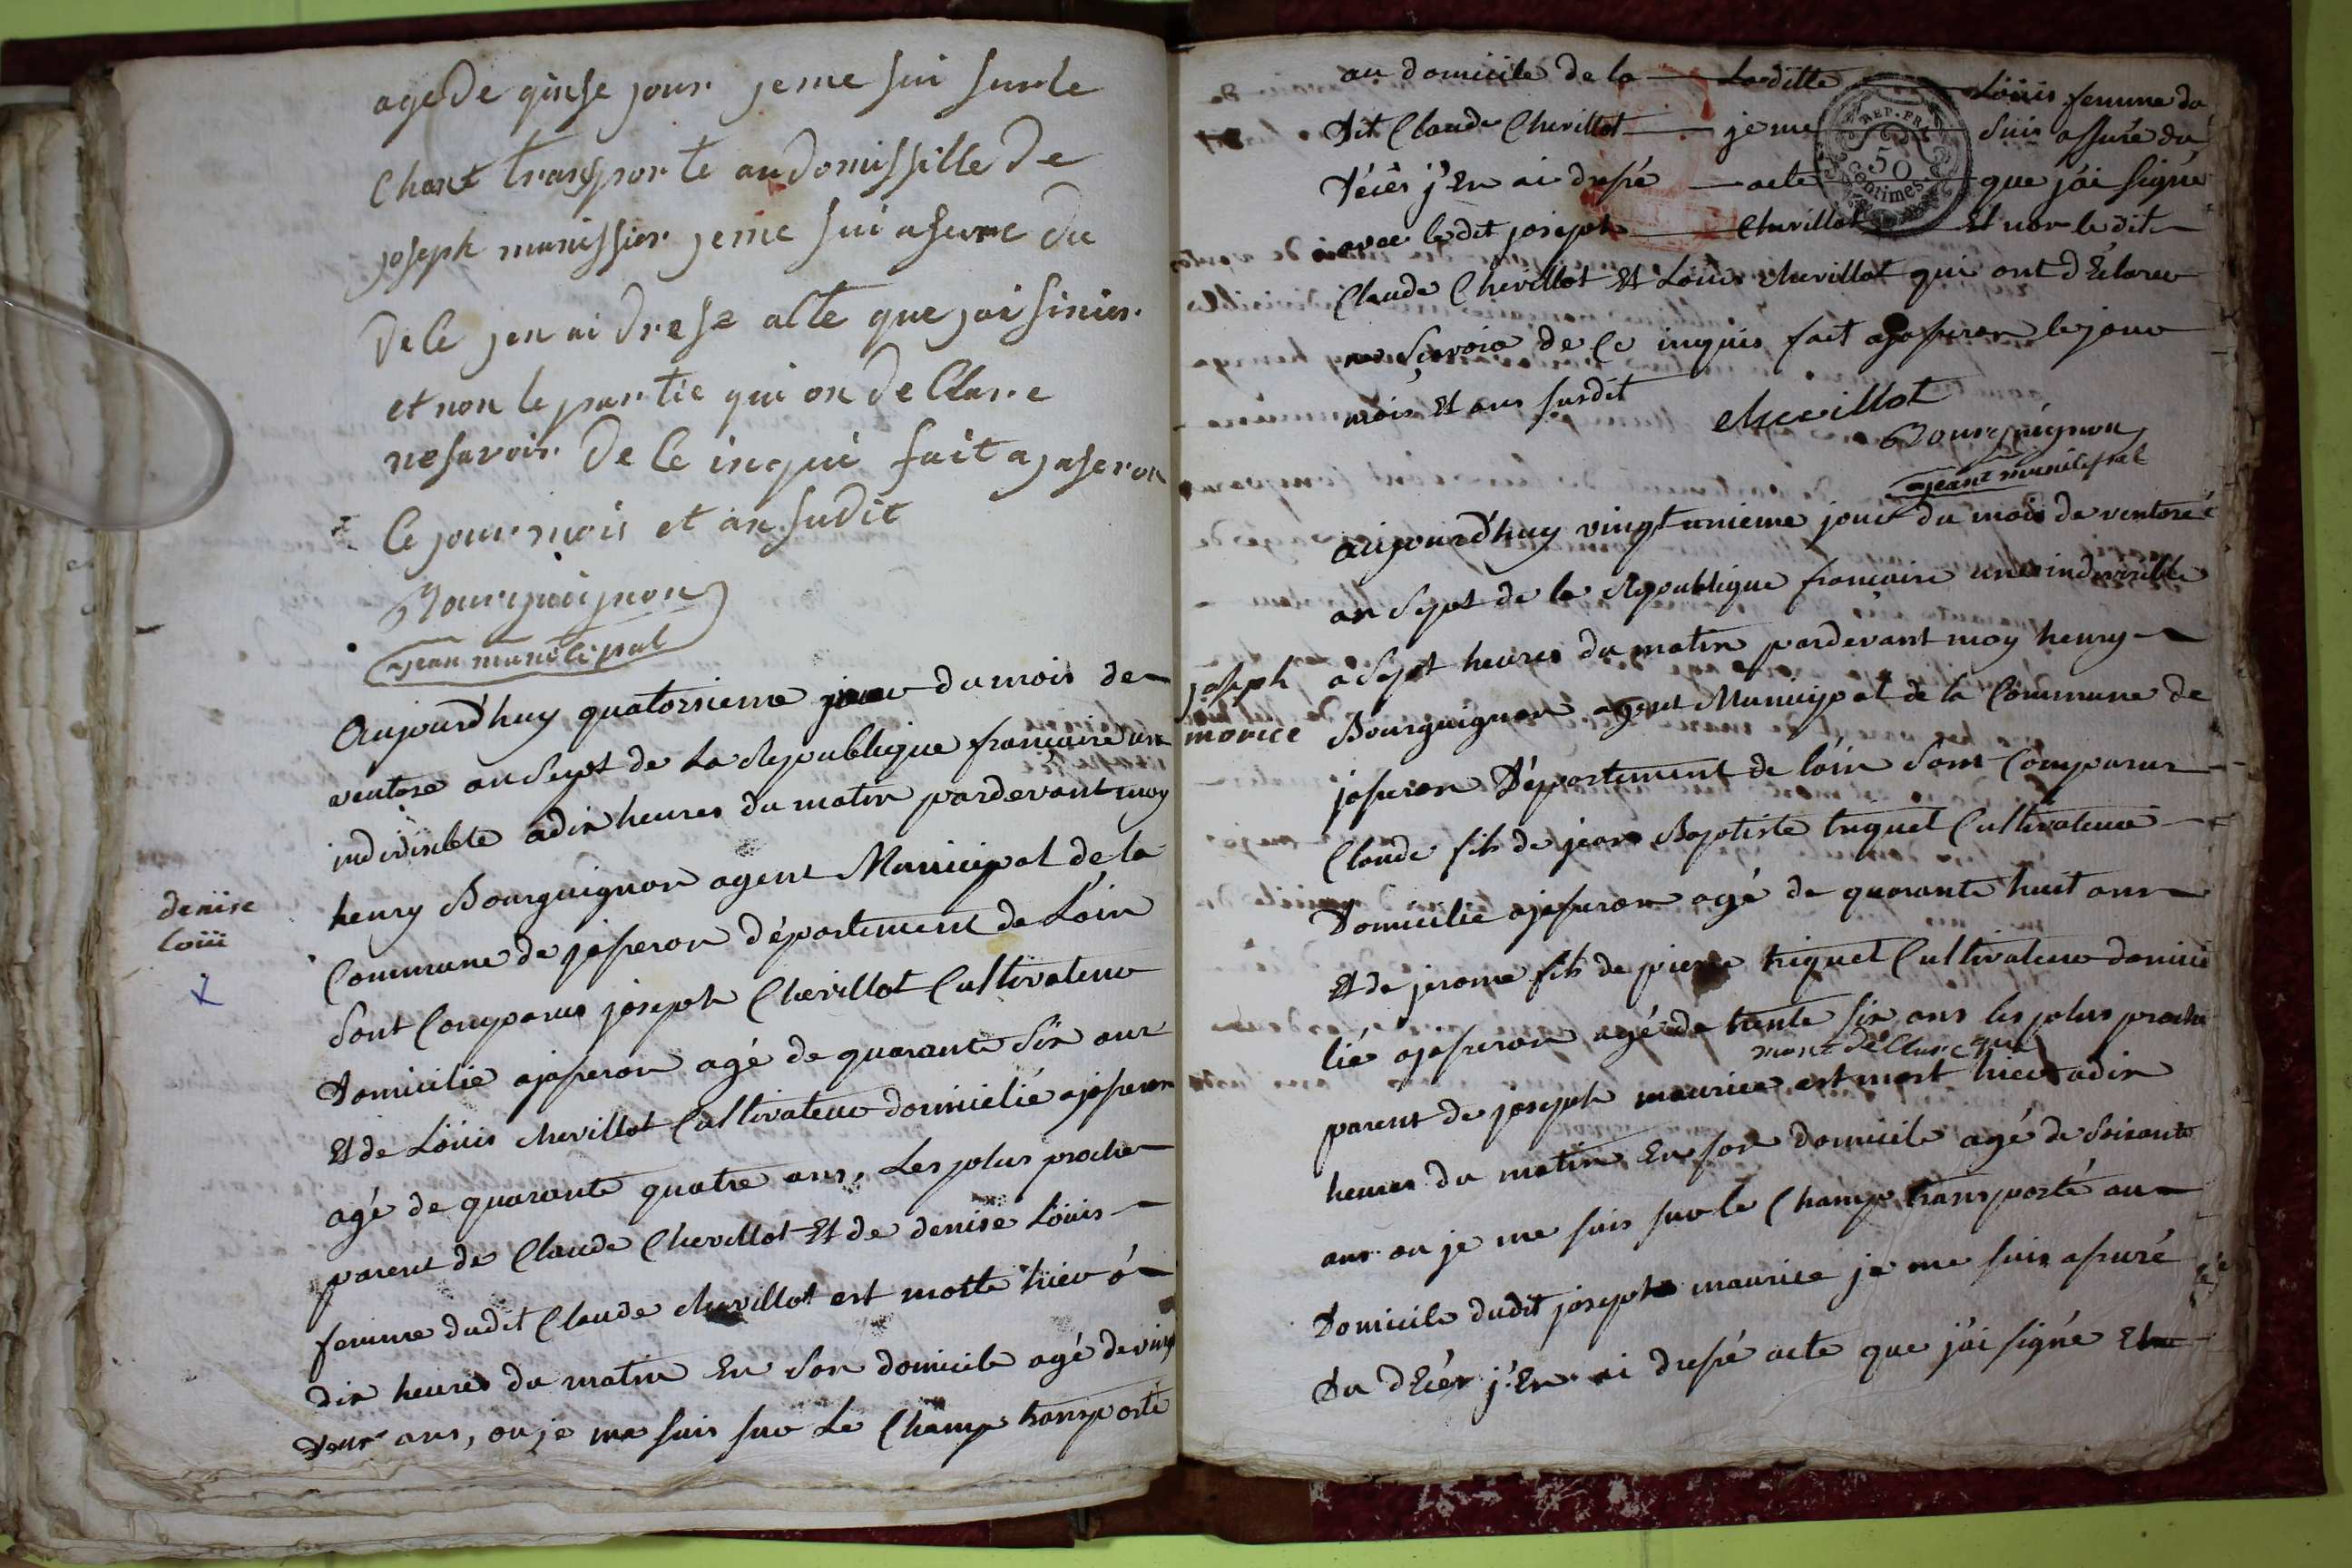 age de quinse jour jeme sui surle
Chant transporte au domissille De
joseph munissier jeme sui asurre du
dece jen ai drese acte que jai sinier
et non le partie qui on de Clare
ne savoir De Ce inqui fait a jaseron
le jour mois et an sudit
Bourguignon
ajean municipal
Aujourd'huy quatorsieme jour du mois de
ventose an Sept de La Republique française une
indivisible a dix heures du matin pardevant moy
henry Bourguignon agent Municipal de la
Commune de jasseron département de L'ain
Sont Comparus joseph Chevillot Cultivateur
Domicilié ajasseron agé de quarante Six ans
Et de Löuis chevillot Cultivateur domicilié ajasseron
agé de quarante quatre ans, Les plus proche
parent de Claude Chevillot Et de denise Löuis
femme dudit Claude chevillot est morte hier à
dix heures du matin En Son domicile agé de vingt
Deux ans, ou je me suis sur Le Champ transporté
denise
loüi
au domicile de la Laditte Löuis femme du
Dit Claude Chevillot je me Suis assuré du
Décès j'En ai dressé acte que j'ai signé
avec ledit joseph Chevillot Et non ledit
Claude Chevillot Et Louis chevillot qui ont déclaré
ne Scavoir de Ce inquis fait ajasseron le jour
mois Et ans susdit
chevillot
Bourguignon
ajeant municipal
REP. FRA.
50
centimes
aujourd'huy vingt unieme jour du mois de ventose
an Sept de la Republique françoise une indivisible
a Sept heures du matin pardevant moy henry
Bourguignon agent Municipal de la Commune de
jasseron Département de l'ain Sont Comparus
Claude fils de jean Baptiste triquet Cultivateur
Domicilié ajasseron agé de quarante huit ans
Et de jerome fils de pierre triquet Cultivateur domici
lié ajasseron, agé de trente six ans les plus proche
mont déClare que
parent de joseph maurice est mort hier adix
heures du matin En son domicile agé de Soixante
ans ou je me suis sur le Champ transporté au
Domicile dudit joseph maurice je me suis assuré
Du déCés j'En ai dressé acte que j'ai signé Et
joseph
morice